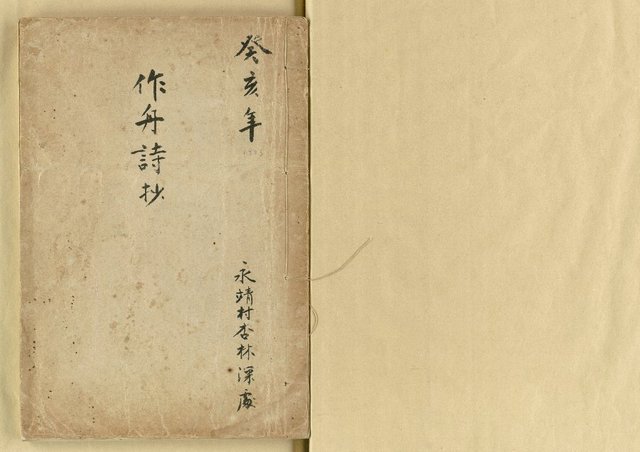 癸亥年
1923
永靖村杏林深處
作舟詩抄